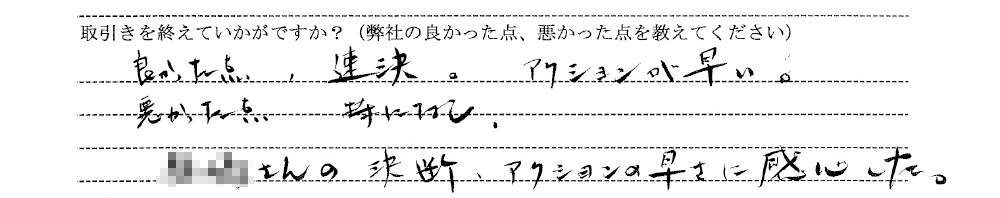 取引きを終えていかがですか？（弊社の良かった点、悪かった点を教えてください）
良かった点、速決。アクションが早い。
悪かった点 特になし.
さんの決断、アクションの早さに感心した。